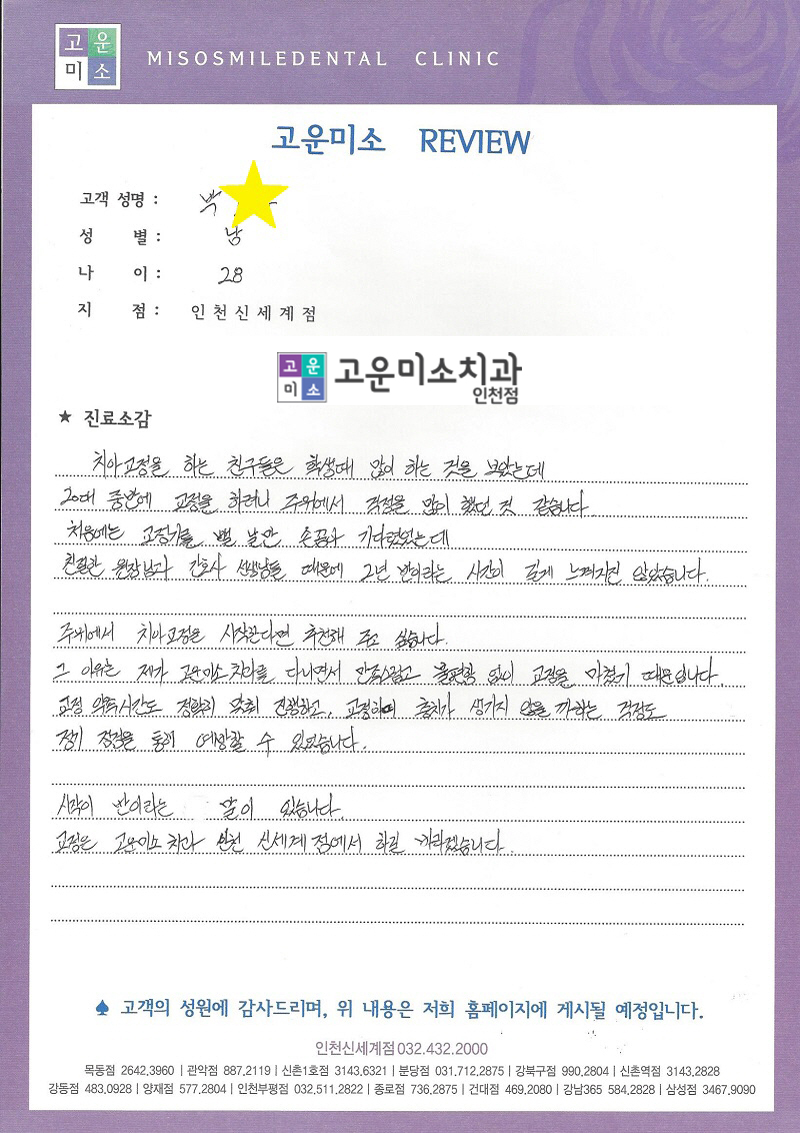 고운
미소
MISOSMILEDENTAL CLINIC
고운미소 REVIEW
고객 성명 : 박
성 별 : 남
나 이 : 28
지 점 : 인천신세계점
고운
미소
고운미소치과
인천점
★ 진료소감
치아교정을 하는 친구들은 학생때 많이 하는 것을 보았는데
20대 중반에 교정을 하려니 주위에서 걱정을 많이 했던 것 같습니다.
처음에는 교정기를 뺄 날만 손꼽아 기다렸었는데
친절한 원장님과 간호사 선생님들 때문에 2년 반이라는 시간이 길게 느껴지진 않았습니다.
주위에서 치아교정을 시작한다면 추천해 주고 싶습니다.
그 이유는 제가 고운미소치과를 다니면서 만족스럽고 불편함 없이 교정을 마쳤기 때문입니다.
교정 약속시간도 정확히 맞춰 진행하고, 교정하며 충치가 생기지 않을까하는 걱정도
정기 검진을 통해 예방할 수 있었습니다.
시작이 반이라는 말이 있습니다.
교정은 고운미소치과 인천 신세계점에서 하길 바라겠습니다.
♠ 고객의 성원에 감사드리며, 위 내용은 저희 홈페이지에 게시될 예정입니다.
인천신세계점 032.432.2000
목동점 2642.3960 | 관악점 887.2119 | 신촌1호점 3143.6321 | 분당점 031.712.2875 | 강북구점 990.2804 | 신촌역점 3143.2828
강동점 483.0928 | 양재점 577.2804 | 인천부평점 032.511.2822 | 종로점 736.2875 | 건대점 469.2080 | 강남365 584.2828 | 삼성점 3467.9090